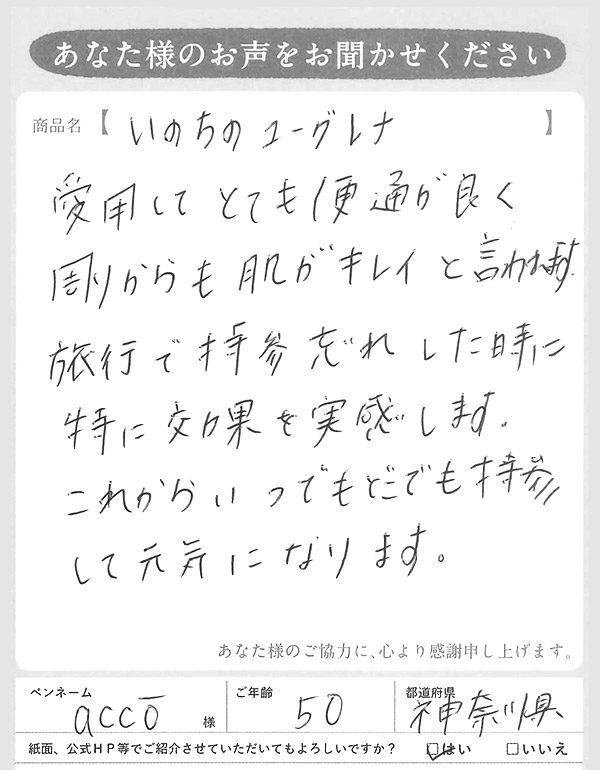 あなた様のお声をお聞かせください
商品名【いのちのユーグレナ】
愛用してとても便通が良く
周りからも肌がキレイと言われます
旅行で持参忘れした時に
特に効果を実感します。
これからいつでもどこでも持参
して元気になります。
あなた様のご協力に、心より感謝申し上げます。
ペンネーム accō 様 ご年齢 50 都道府県 神奈川県
紙面、公式HP等でご紹介させていただいてもよろしいですか? ☑はい □いいえ